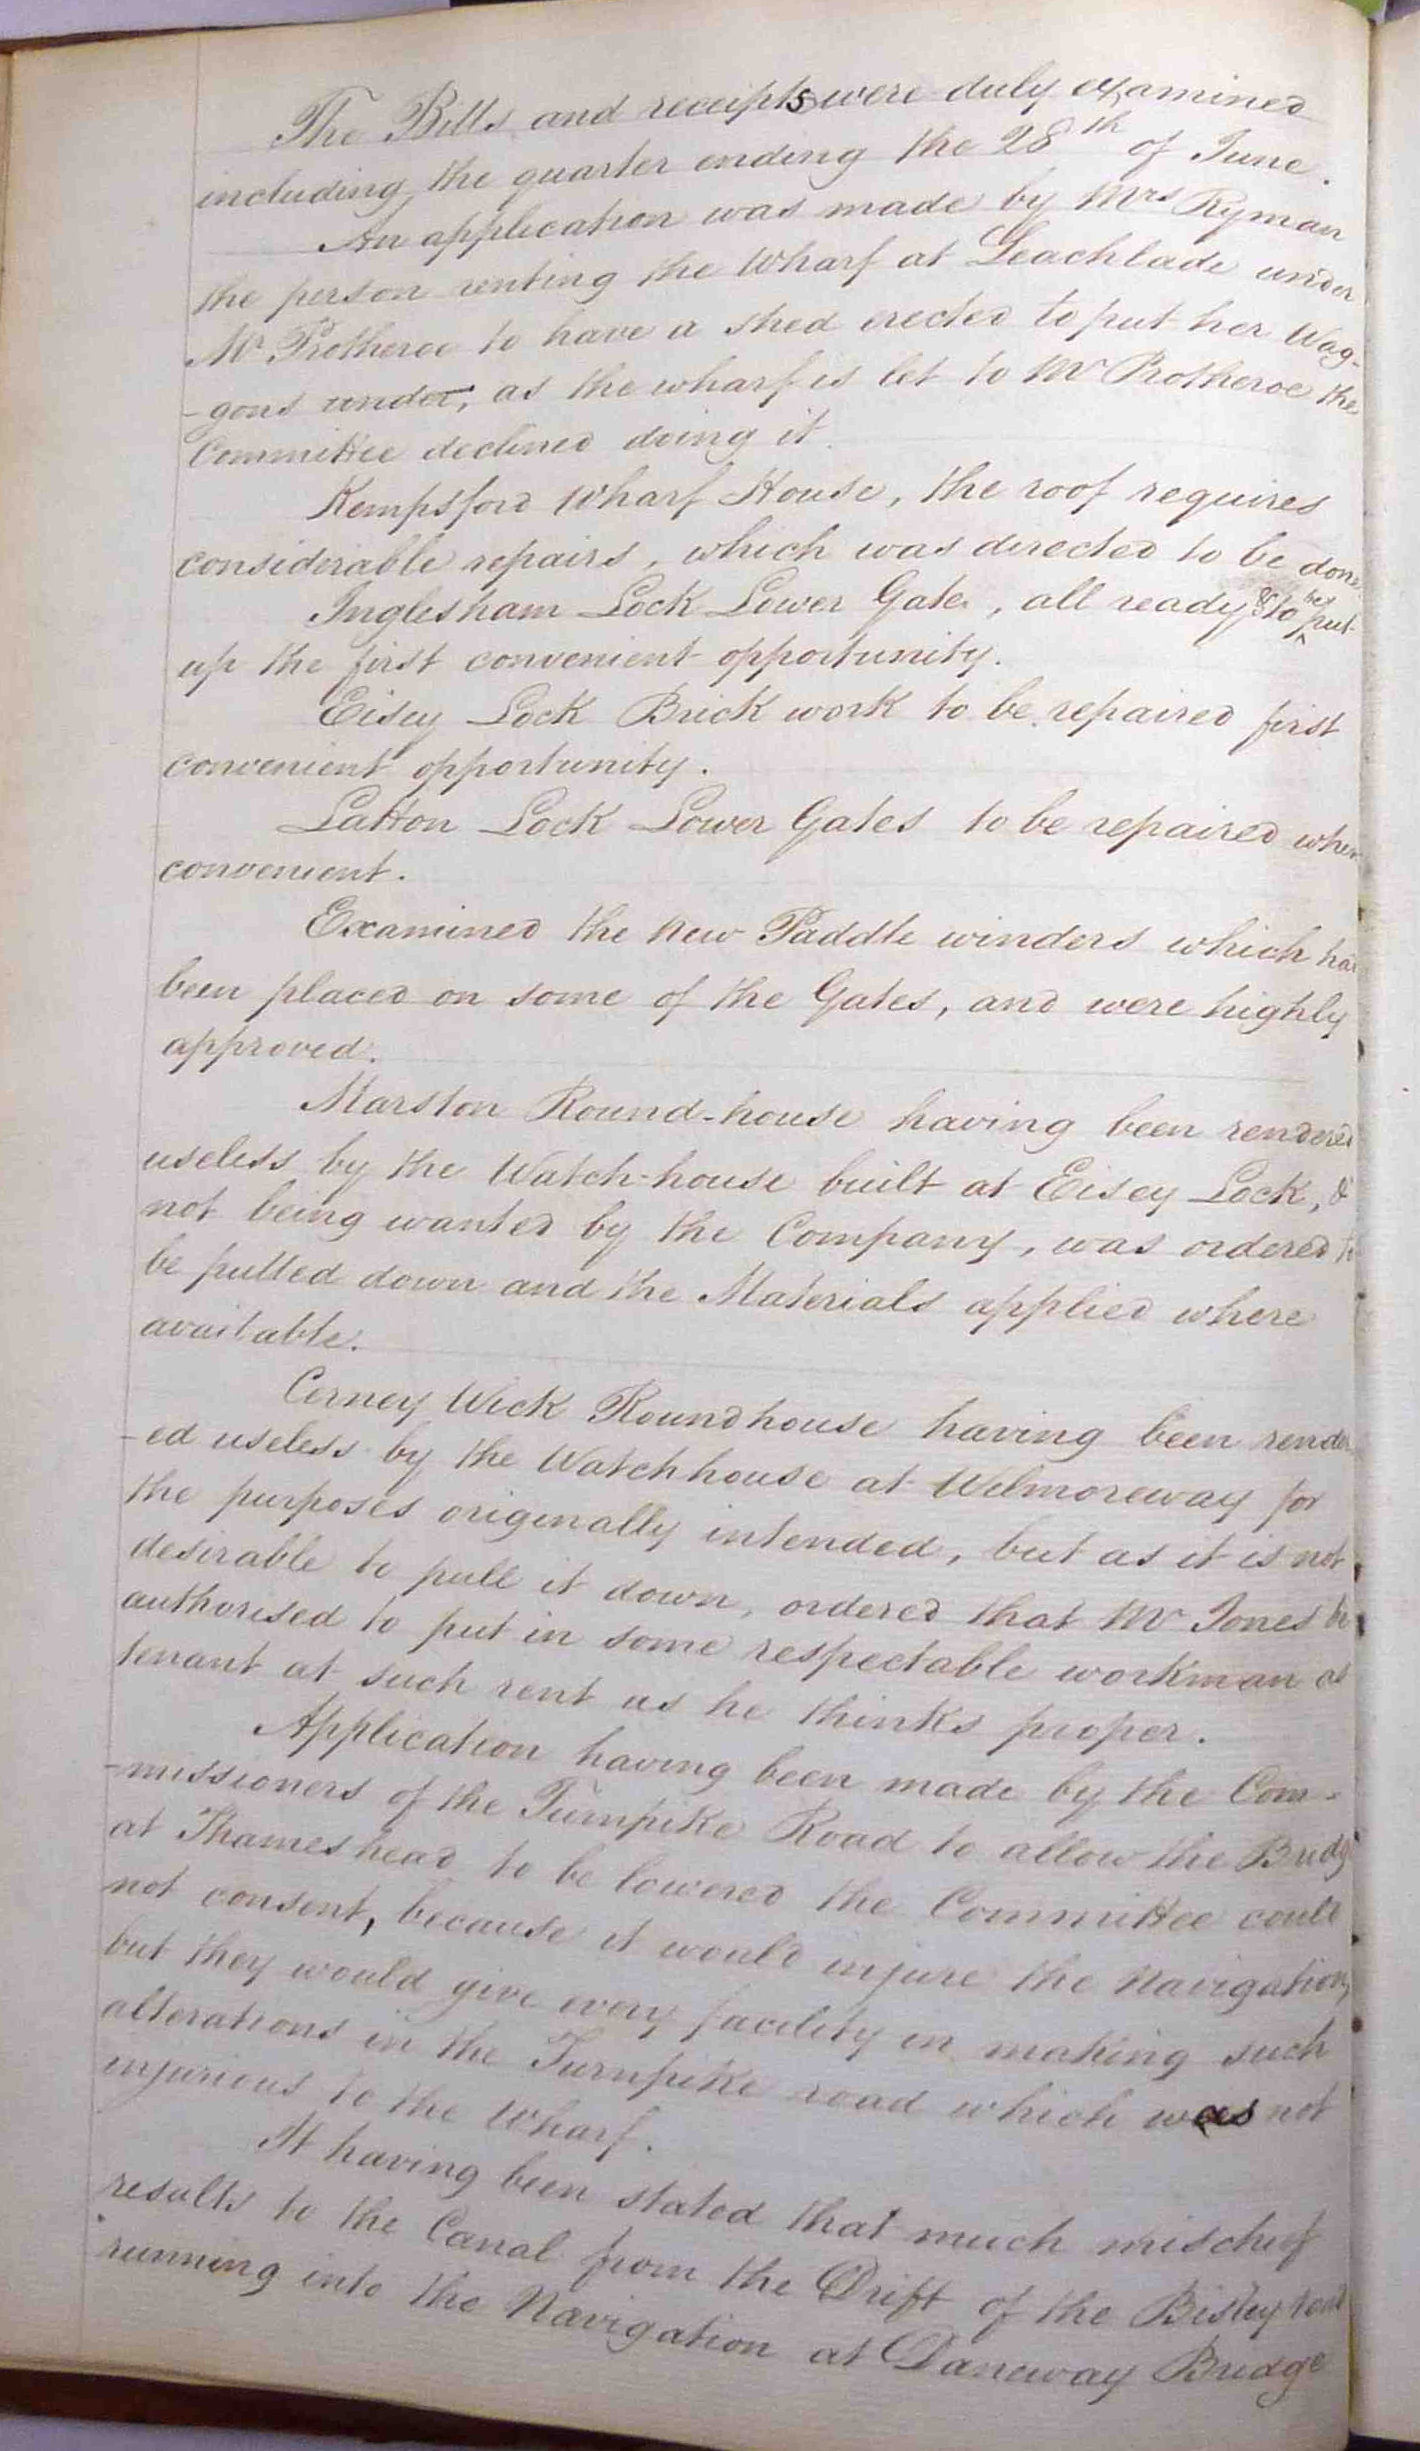 The Bills and receipts were duly examined
including the quarter ending the 28th of June.
An application was made by Mrs Ryman
the person renting the Wharf at Leachlade under
Mr Protheroe to have a shed erected to put her Wag-
-gons under, as the wharf is let to Mr Protheroe the
Committee declined doing it.
Kempsford Wharf House, the roof requires
considerable repairs, which was directed to be done.
Inglesham Lock Lower Gate, all ready & to be put
up the first convenient opportunity.
Eisey Lock Brick work to be repaired first
convenient opportunity.
Latton Lock Lower Gates to be repaired when
convenient.
Examined the new Paddle winders which had
been placed on some of the Gates, and were highly
approved.
Marston Round-house having been rendered
useless by the Watch-house built at Eisey Lock, &
not being wanted by the Company, was ordered to
be pulled down and the Materials applied where
available.
Cerney Wick Roundhouse having been render
-ed useless by the Watchhouse at Wilmoreway for
the purposes originally intended, but as it is not
desirable to pull it down, ordered that Mr Jones be
authorised to put in some respectable workman as
tenant at such rent as he thinks proper.
Application having been made by the Com-
-missioners of the Turnpike Road to allow the Bridge
at Thames head to be lowered the Committee could
not consent, because it would injure the Navigation,
but they would give every facility in making such
alterations in the Turnpike road which was not
injurious to the Wharf.
It having been stated that much mischief
results to the Canal from the Drift of the Bisley road
running into the Navigation at Daneway Bridge